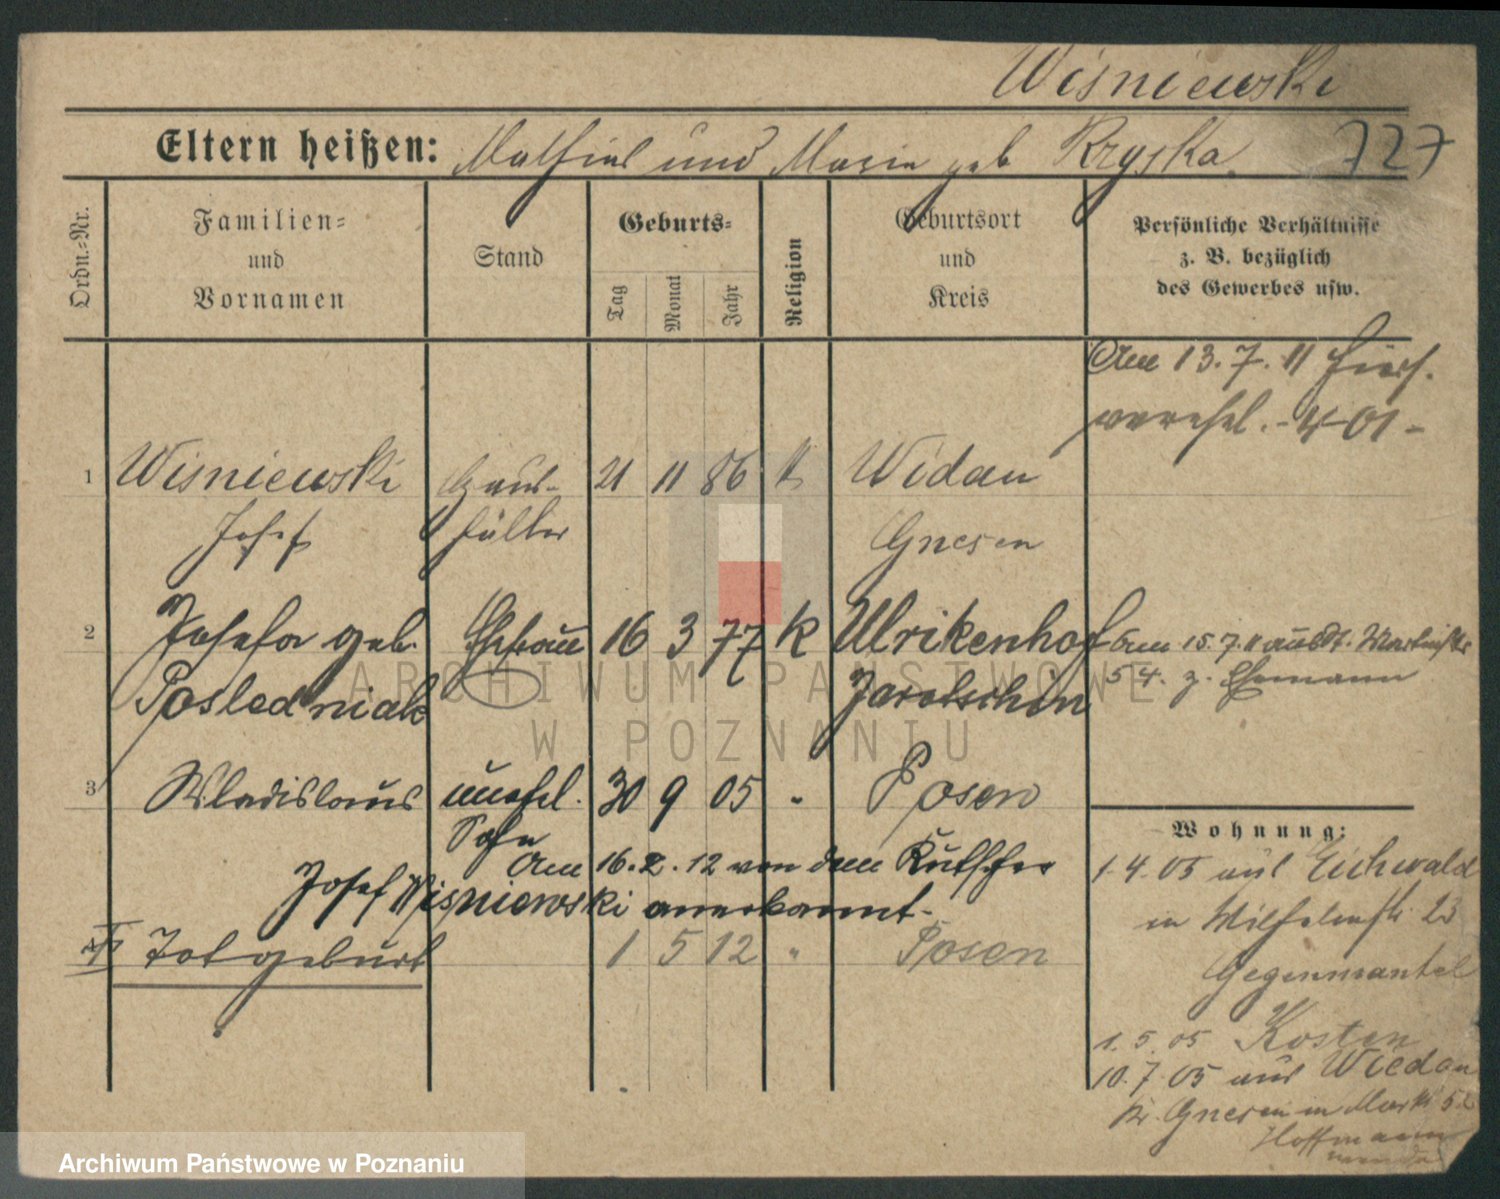 Wiśniewski
Eltern heißen: Mathias und Marie geb Kryska 727
Ordn.-Nr.
Familien- und Vornamen
Stand
Geburts-
Tag
Monat
Jahr
Religion
Geburtsort und Kreis
Persönliche Verhältnisse z. B. bezüglich des Gewerbes usw.
Am 13. 7. 11
1 Wisniewski 21 11 86 k Widau
Josef Gnesen
2 Josefa geb. Ehefrau 16 3 77 k Ulrikenhof Am 15. 7. 11
Posledniak Jarotschin 54. z. Ehemann
3 Wladislaus unehel. 30 9 05 " Posen
Sohn
Am 16. 2. 12 von dem Kutscher
Josef Wisniewski anerkannt.
Totgeburt 1 5 12 " Posen
Wohnung:
1. 4. 05 aus Eichwald
in Wilhelmstr. 23
Gegenmantel
1. 5. 05 Kosten
10. 7. 05 aus Wiedau
Kr. Gnesen in Markt 52
Hoffmann
ARCHIWUM PAŃSTWOWE
W POZNANIU
Archiwum Państwowe w Poznaniu